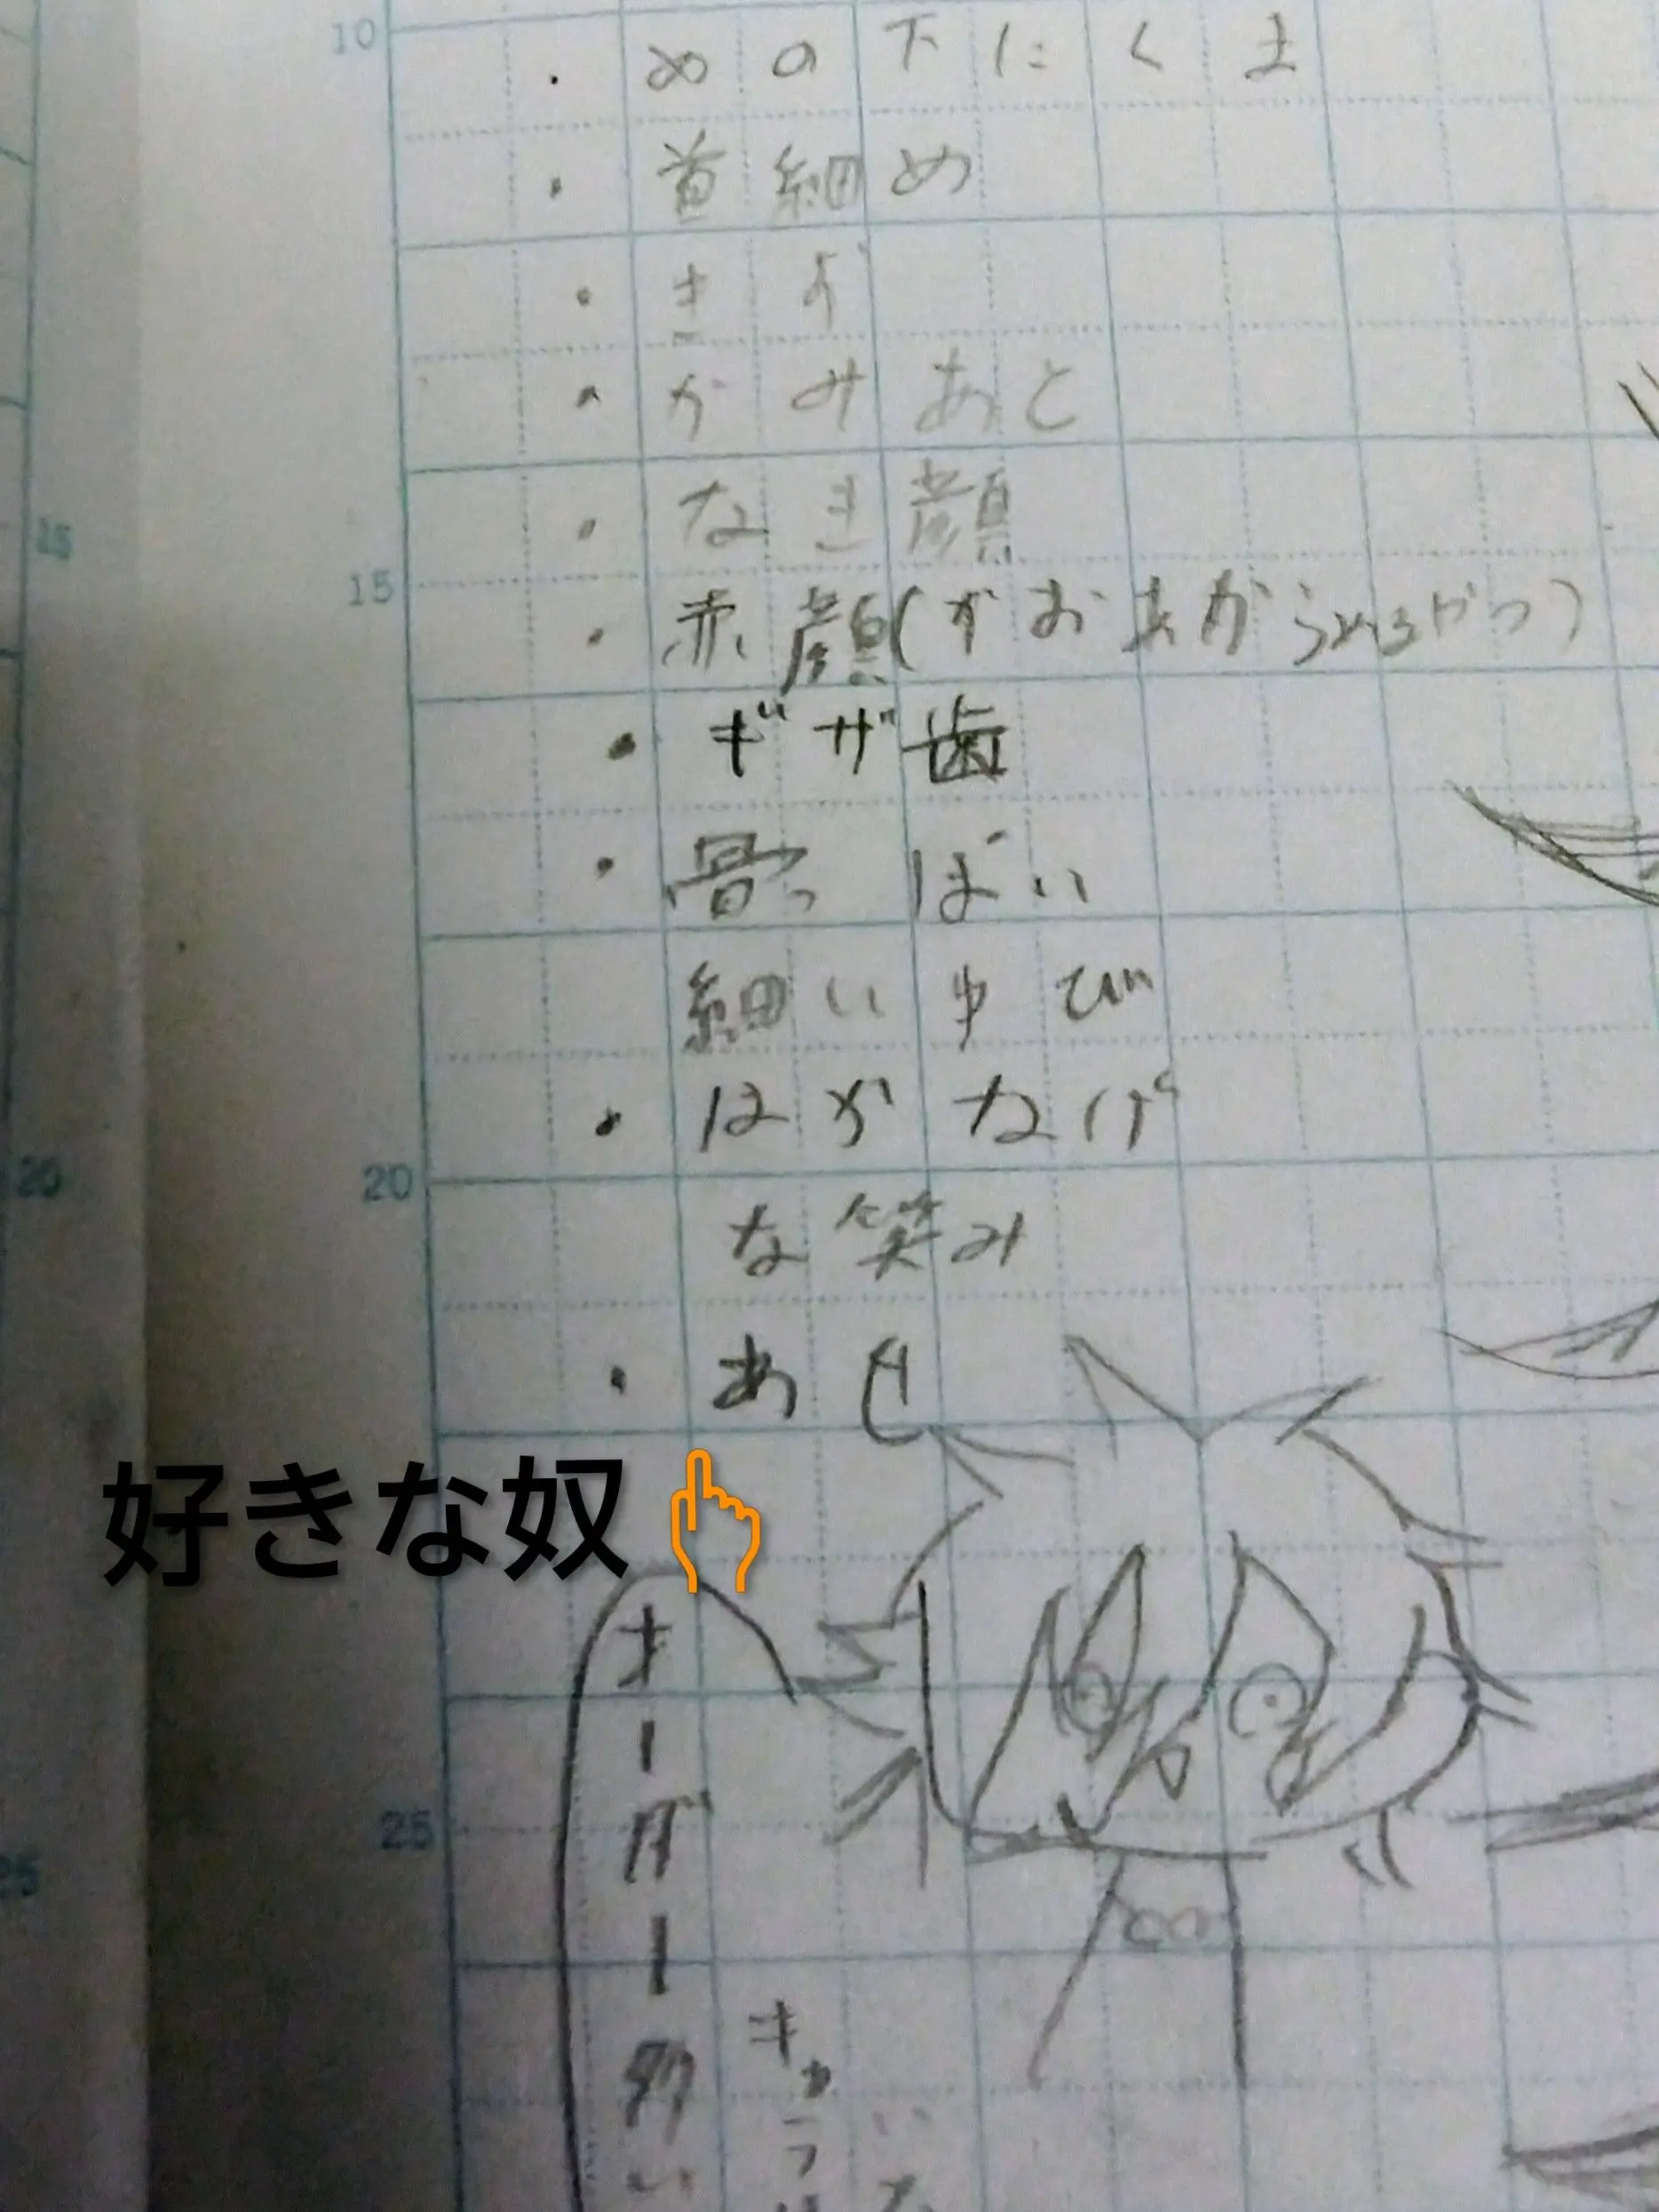 10
・めの下にくま
・首細め
・きず
・かみあと
・なき顔
15
・赤顔(かおあからめるやつ)
・ギザ歯
・骨っぽい
細いゆび
・はかなげ
20
な笑み
・あせ
好きな奴
オーダー多い
25
15
20
25